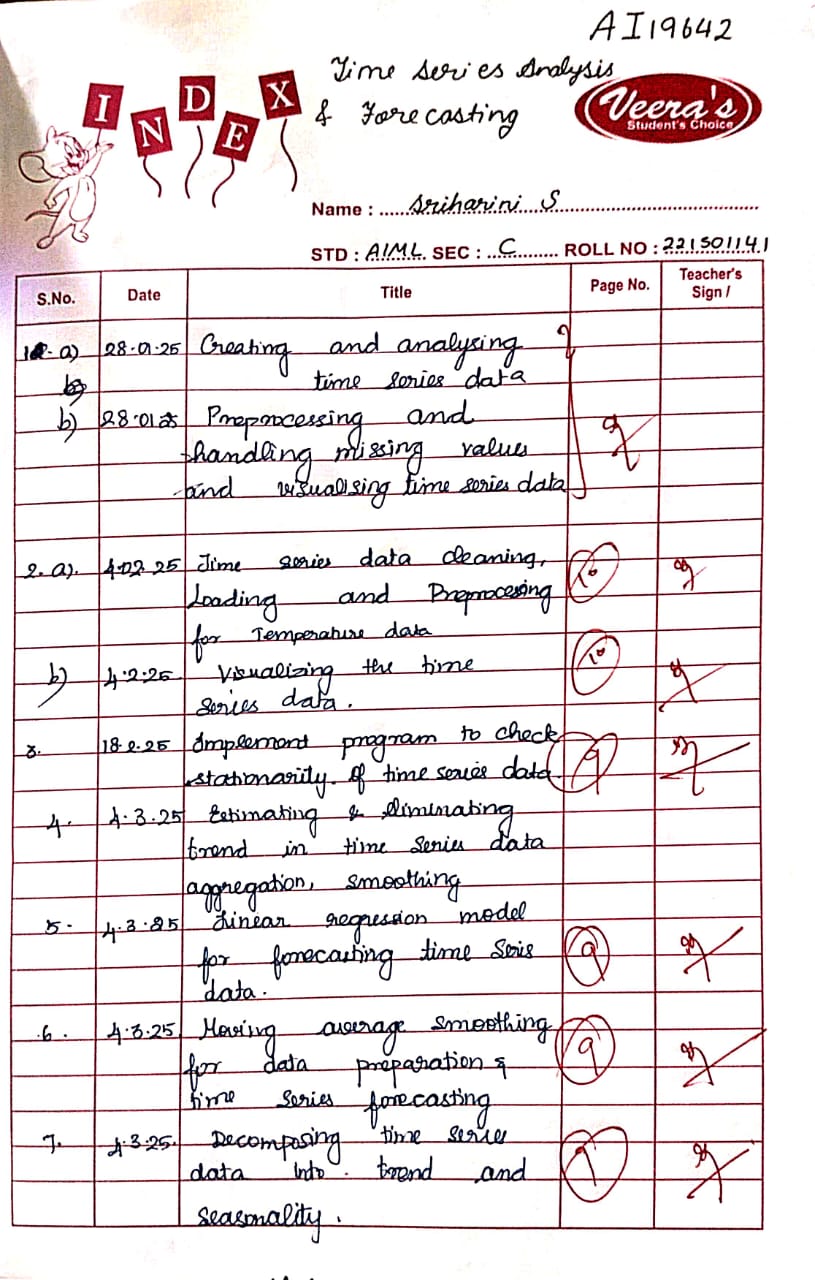 AI19642
Time Series Analysis
& Forecasting
INDEX
Veera's
Student's Choice
Name : Sriharini S
STD : AIML SEC : C ROLL NO : 221501141
S.No. Date Title Page No. Teacher's Sign /
1. a) 28.01.25 Creating and analysing
time series data
b) 28.01.25 Preprocessing and
handling missing values
and visualising time series data
2. a). 4.02.25 Time series data cleaning,
Loading and Preprocessing 10
for Temperature data
b) 4.2.25 Visualizing the time 10
series data.
3. 18.2.25 Implement program to check
stationarity of time series data 9
4. 4.3.25 Estimating & eliminating
trend in time series data
aggregation, smoothing
5. 4.3.25 Linear regression model
for forecasting time Seris 9
data.
6. 4.3.25 Moving average smoothing
for data preparation & 9
time series forecasting
7. 4.3.25. Decomposing time series
data into trend and 9
seasonality.